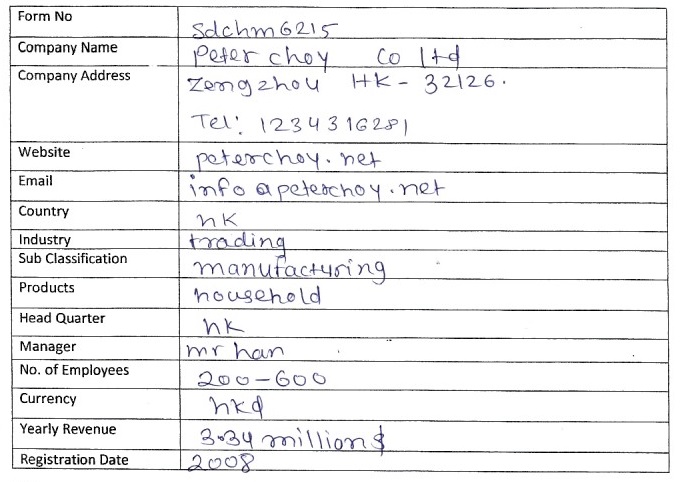 Form No Sdchm6215
Company Name Peter choy Co ltd
Company Address Zengzhou HK - 32126.
Tel: 1234316281
Website peterchoy.net
Email info@peterchoy.net
Country hk
Industry trading
Sub Classification manufacturing
Products household
Head Quarter hk
Manager mr han
No. of Employees 200-600
Currency hkd
Yearly Revenue 3.34 million $
Registration Date 2008